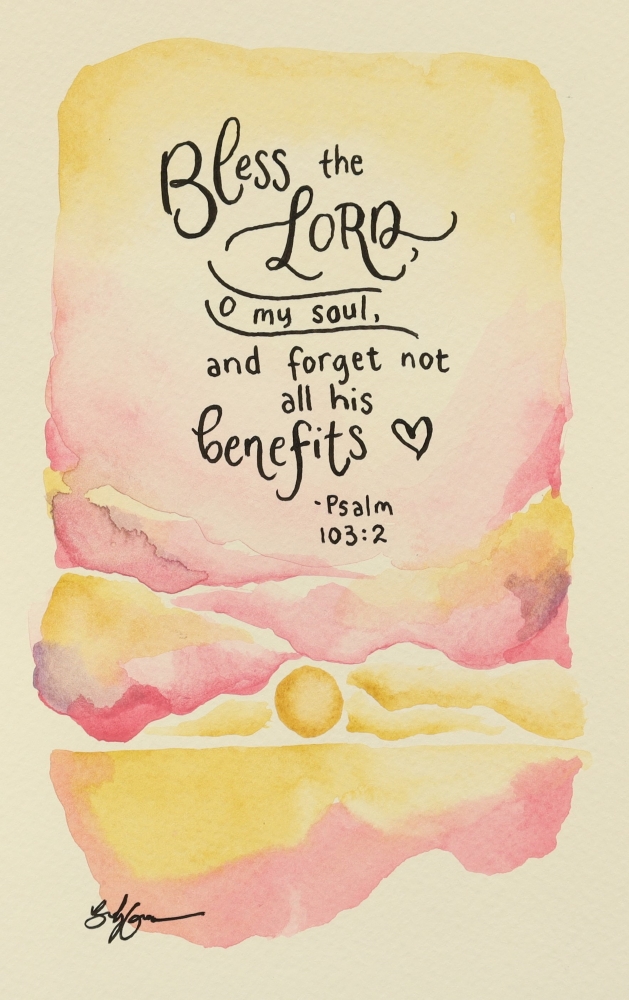 Bless the
LORD,
O my soul,
and forget not
all his
benefits ♡
-Psalm
103:2